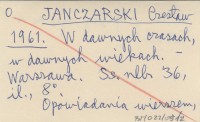 O JANCZARSKI Czesław
1961. W dawnych czasach,
w dawnych wiekach. -
Warszawa. Ss. nlb 36,
il., 8°.
Opowiadania wierszem,